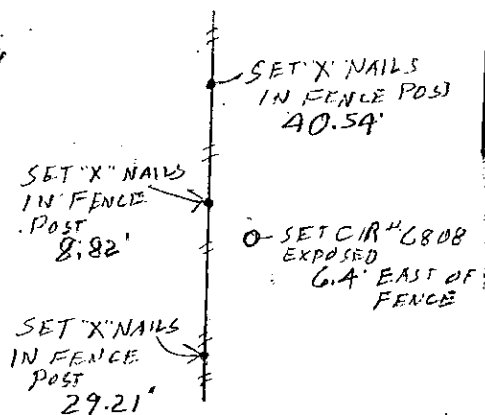 SET "X" NAILS
IN FENCE POST
40.54'
SET "X" NAILS
IN FENCE
POST
8.82'
SET CIR #6808
EXPOSED
6.4' EAST OF
FENCE
SET "X" NAILS
IN FENCE
POST
29.21'